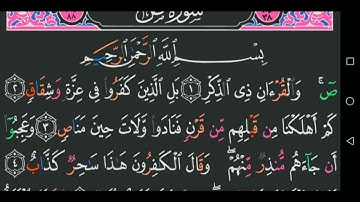 ٨٨ سُورَةُ صٓ ٣٨
بِسْمِ ٱللَّهِ ٱلرَّحْمَٰنِ ٱلرَّحِيمِ
صٓ ۚ وَٱلْقُرْءَانِ ذِى ٱلذِّكْرِ ١ بَلِ ٱلَّذِينَ كَفَرُوا۟ فِى عِزَّةٍ وَشِقَاقٍ ٢
كَمْ أَهْلَكْنَا مِن قَبْلِهِم مِّن قَرْنٍ فَنَادَوا۟ وَّلَاتَ حِينَ مَنَاصٍ ٣ وَعَجِبُوٓا۟
أَن جَآءَهُم مُّنذِرٌ مِّنْهُمْ ۖ وَقَالَ ٱلْكَٰفِرُونَ هَٰذَا سَٰحِرٌ كَذَّابٌ ٤